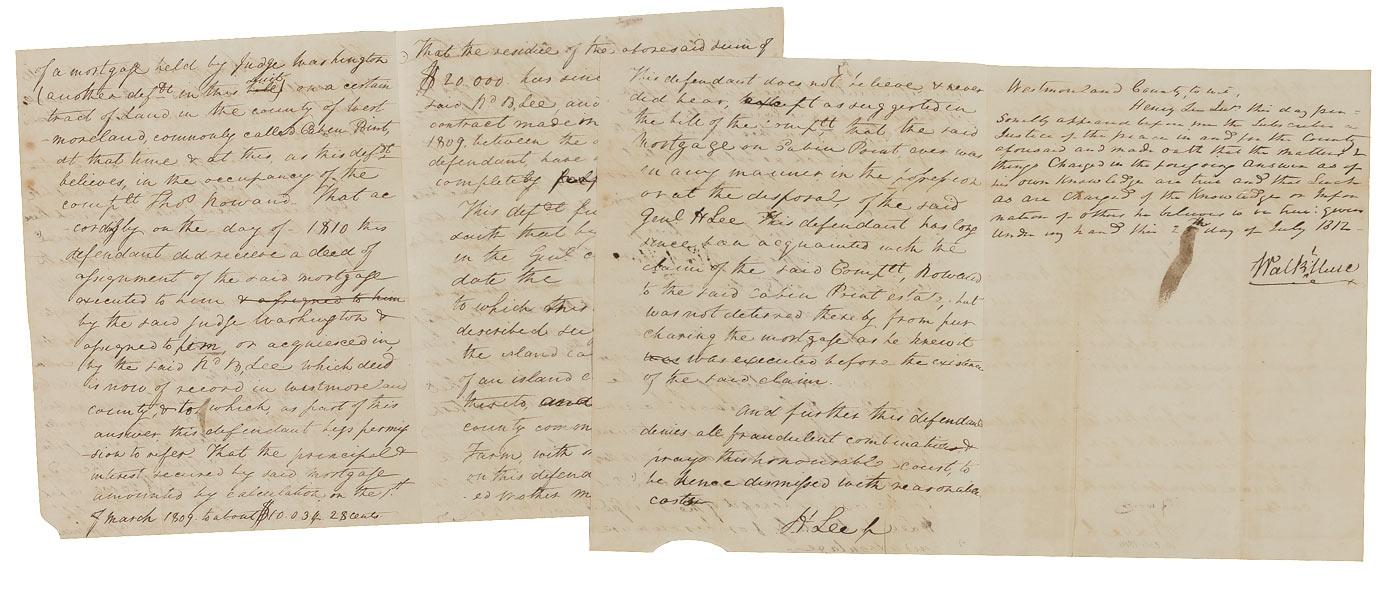 of a mortgage held by Judge Washington
(another defdt in this suit) on a certain
tract of Land in the county of West
-moreland, commonly called Cabin Point,
at that time & at this, as this defdt
believes, in the occupancy of the
complt Thos Rowand. That ac
-cordgly on the day of - 1810 this
defendant did recieve a deed of
assignment of the said mortgage
executed to him & assigned to him
by the said judge Washington &
assigned to or acquiesced in
by the said Rd B Lee which deed
is now of record in Westmoreland
county, & to which, as part of this
answer this defendant begs permis
-sion to refer. That the principal &
interest secured by said mortgage
amounted by calculation on the 1st
of march 1809 to about $10.034. 28 cents
That the residue of the aforesaid sum of
$20.000 has sinc
said Rd B Lee and
contract made on
1809 between the
defendant, have
completely
This defdt fu
that by
in the Genl
date the
to which this
described
the island ca
of an island c
thereto, and
county com
Farm, with
on this defend
ed to this m
This defendant does not believe & never
did hear, except as suggested in
the bill of the complt that the said
Mortgage on Cabin Point ever was
in any manner in the possession
or at the disposal of the said
Genl H Lee This defendant has long
since been acquainted with the
claim of the said Complt, Rowand
to the said Cabin Point estate, but
was not deterred thereby from pur
chasing the mortgage as he knew it
was was executed before the existence
of the said claim.
And further this defendant
denies all fraudulent combination &
prays this honourable court, to
be hence dismissed with reasonable
costs
H Lee Jr
Westmoreland County to wit,
Henry Lee Junr this day per-
sonally appeared before me the Subscriber a
Justice of the peace in and for the County
aforesaid and made oath that the matters &
things Charged in the foregoing answer as of
his own Knowledge are true and that Such
as are Charged of the Knowledge or Infor
nation of others he believes to be true given
under my hand this 2 th day of July 1812 -
Walkr Muse